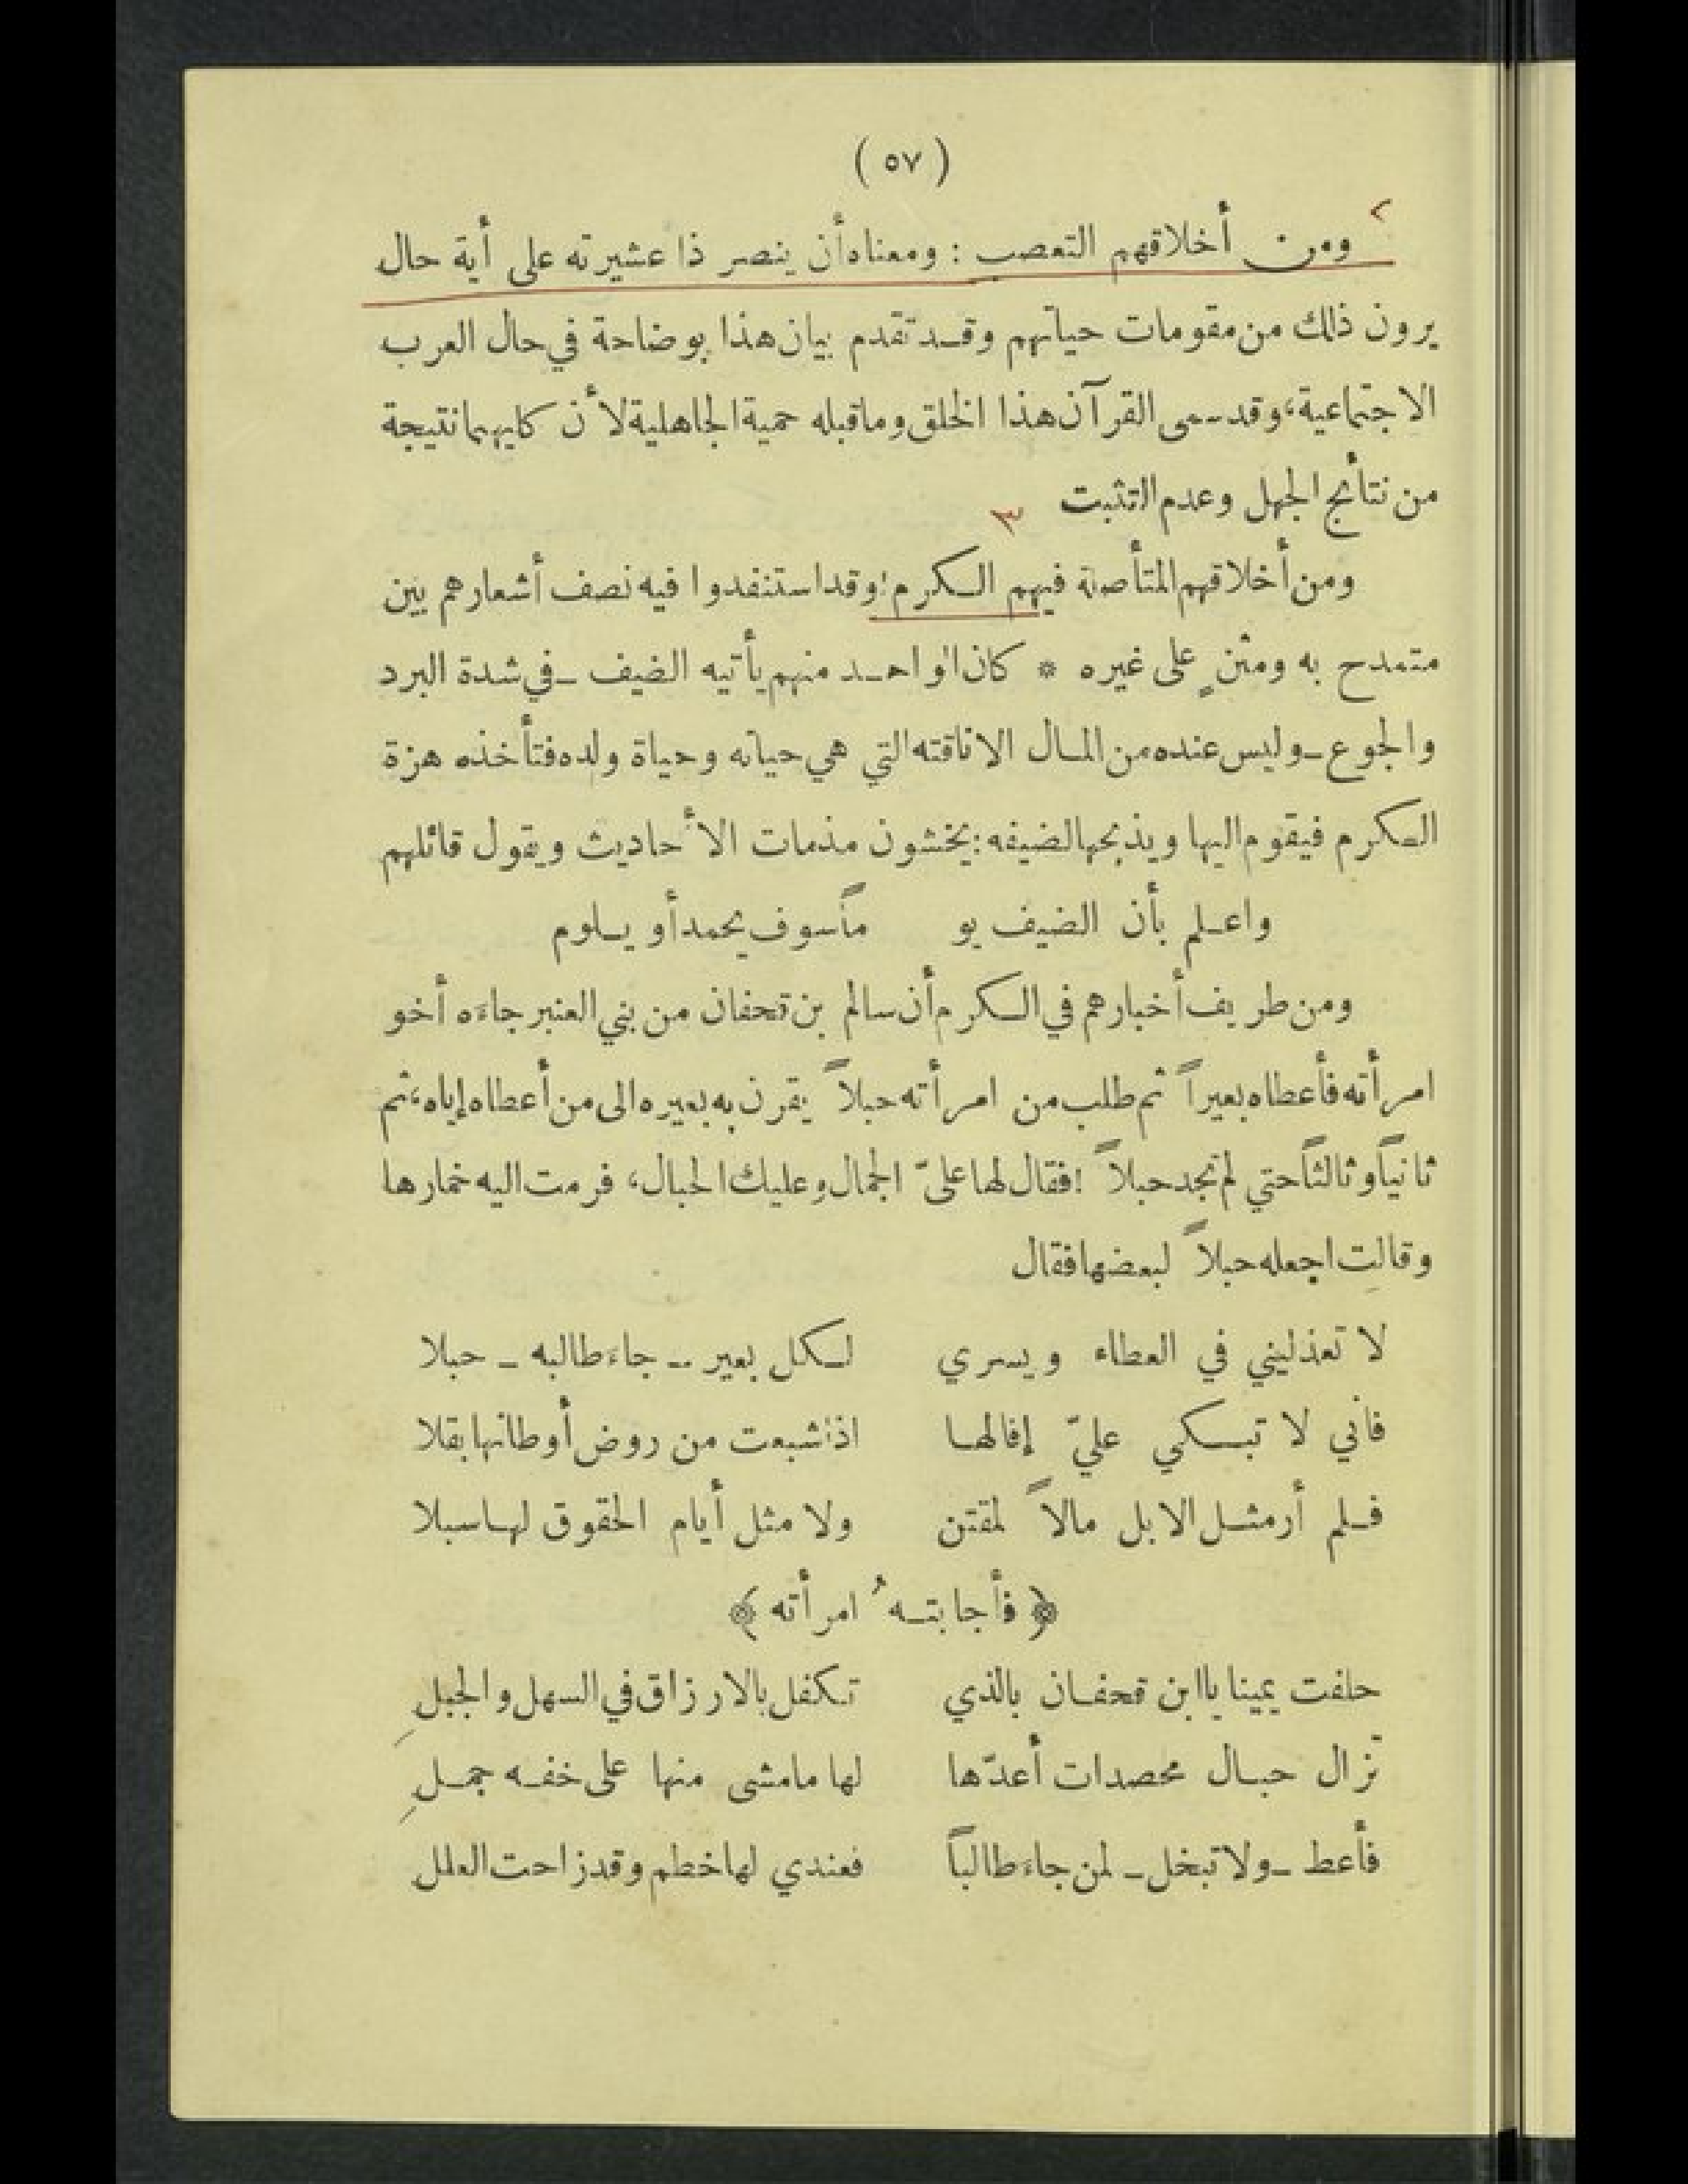 ( ٥٧ )
٢
ومن أخلاقهم التعصب : ومعناه أن ينصر ذا عشيرته على أية حال
يرون ذلك من مقومات حياتهم وقد تقدم بيان هذا بوضاحة في حال العرب
الاجتماعية، وقد سمى القرآن هذا الخلق وما قبله حمية الجاهلية لأن كليهما نتيجة
من نتائج الجهل وعدم التثبت
٣
ومن أخلاقهم المتأصلة فيهم الكرم: وقد استنفدوا فيه نصف أشعارهم بين
متمدح به ومثنٍ على غيره * كان الواحد منهم يأتيه الضيف ـ في شدة البرد
والجوع ـ وليس عنده من المال الا ناقته التي هي حياته وحياة ولده فتأخذه هزة
الكرم فيقوم اليها ويذبحها لضيفه: يخشون مذمات الأحاديث ويقول قائلهم
واعلم بأن الضيف يو     ماً سوف يحمد أو يلوم
ومن طريف أخبارهم في الكرم أن سالم بن قحفان من بني العنبر جاءه أخو
امرأته فأعطاه بعيراً ثم طلب من امرأته حبلاً يقرن به بعيره الى من أعطاه إياه، ثم
ثانياً وثالثاً حتي لم تجد حبلاً ! فقال لها عليّ الجمال وعليك الحبال، فرمت اليه خمارها
وقالت اجعله حبلاً لبعضها فقال
لا تعذليني في العطاء ويسري     لكل بعير ـ جاء طالبه ـ حبلا
فاني لا تبكي عليّ إفالها     اذا شبعت من روض أوطانها بقلا
فلم أر مثل الابل مالاً لمقتن     ولا مثل أيام الحقوق لها سبلا
﴿ فأجابتهُ امرأته ﴾
حلفت يمينا يا ابن قحفان بالذي     تكفل بالارزاق في السهل والجبلِ
تزال حبال محصدات أعدّها     لها ما مشى منها على خفه جملِ
فأعط ـ ولا تبخل ـ لمن جاء طالباً     فعندي لها خطم وقد زاحت العلل